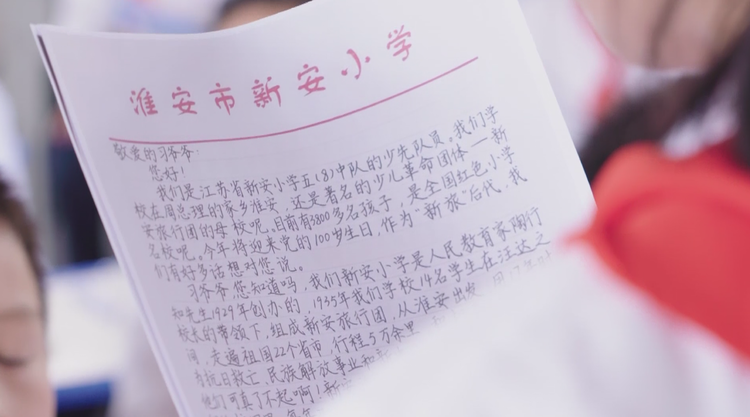 淮安市新安小学
敬爱的习爷爷:
您好!
我们是江苏省新安小学五(8)中队的少先队员。我们学
校在周总理的家乡淮安,还是著名的少儿革命团体——新
安旅行团的母校呢。目前有3800多名孩子,是全国红色小学
名校呢。今年将迎来党的100岁生日,作为"新旅"后代,我
们有好多话想对您说。
习爷爷,您知道吗,我们新安小学是人民教育家陶行
知先生1929年创办的,1935年我们学校14名学生在汪达之
校长的带领下,组成新安旅行团,从淮安出发,用17年时
间,走遍祖国22个省市,行程5万余里
抗日救亡、民族解放事业和
他们可真了不起啊!新